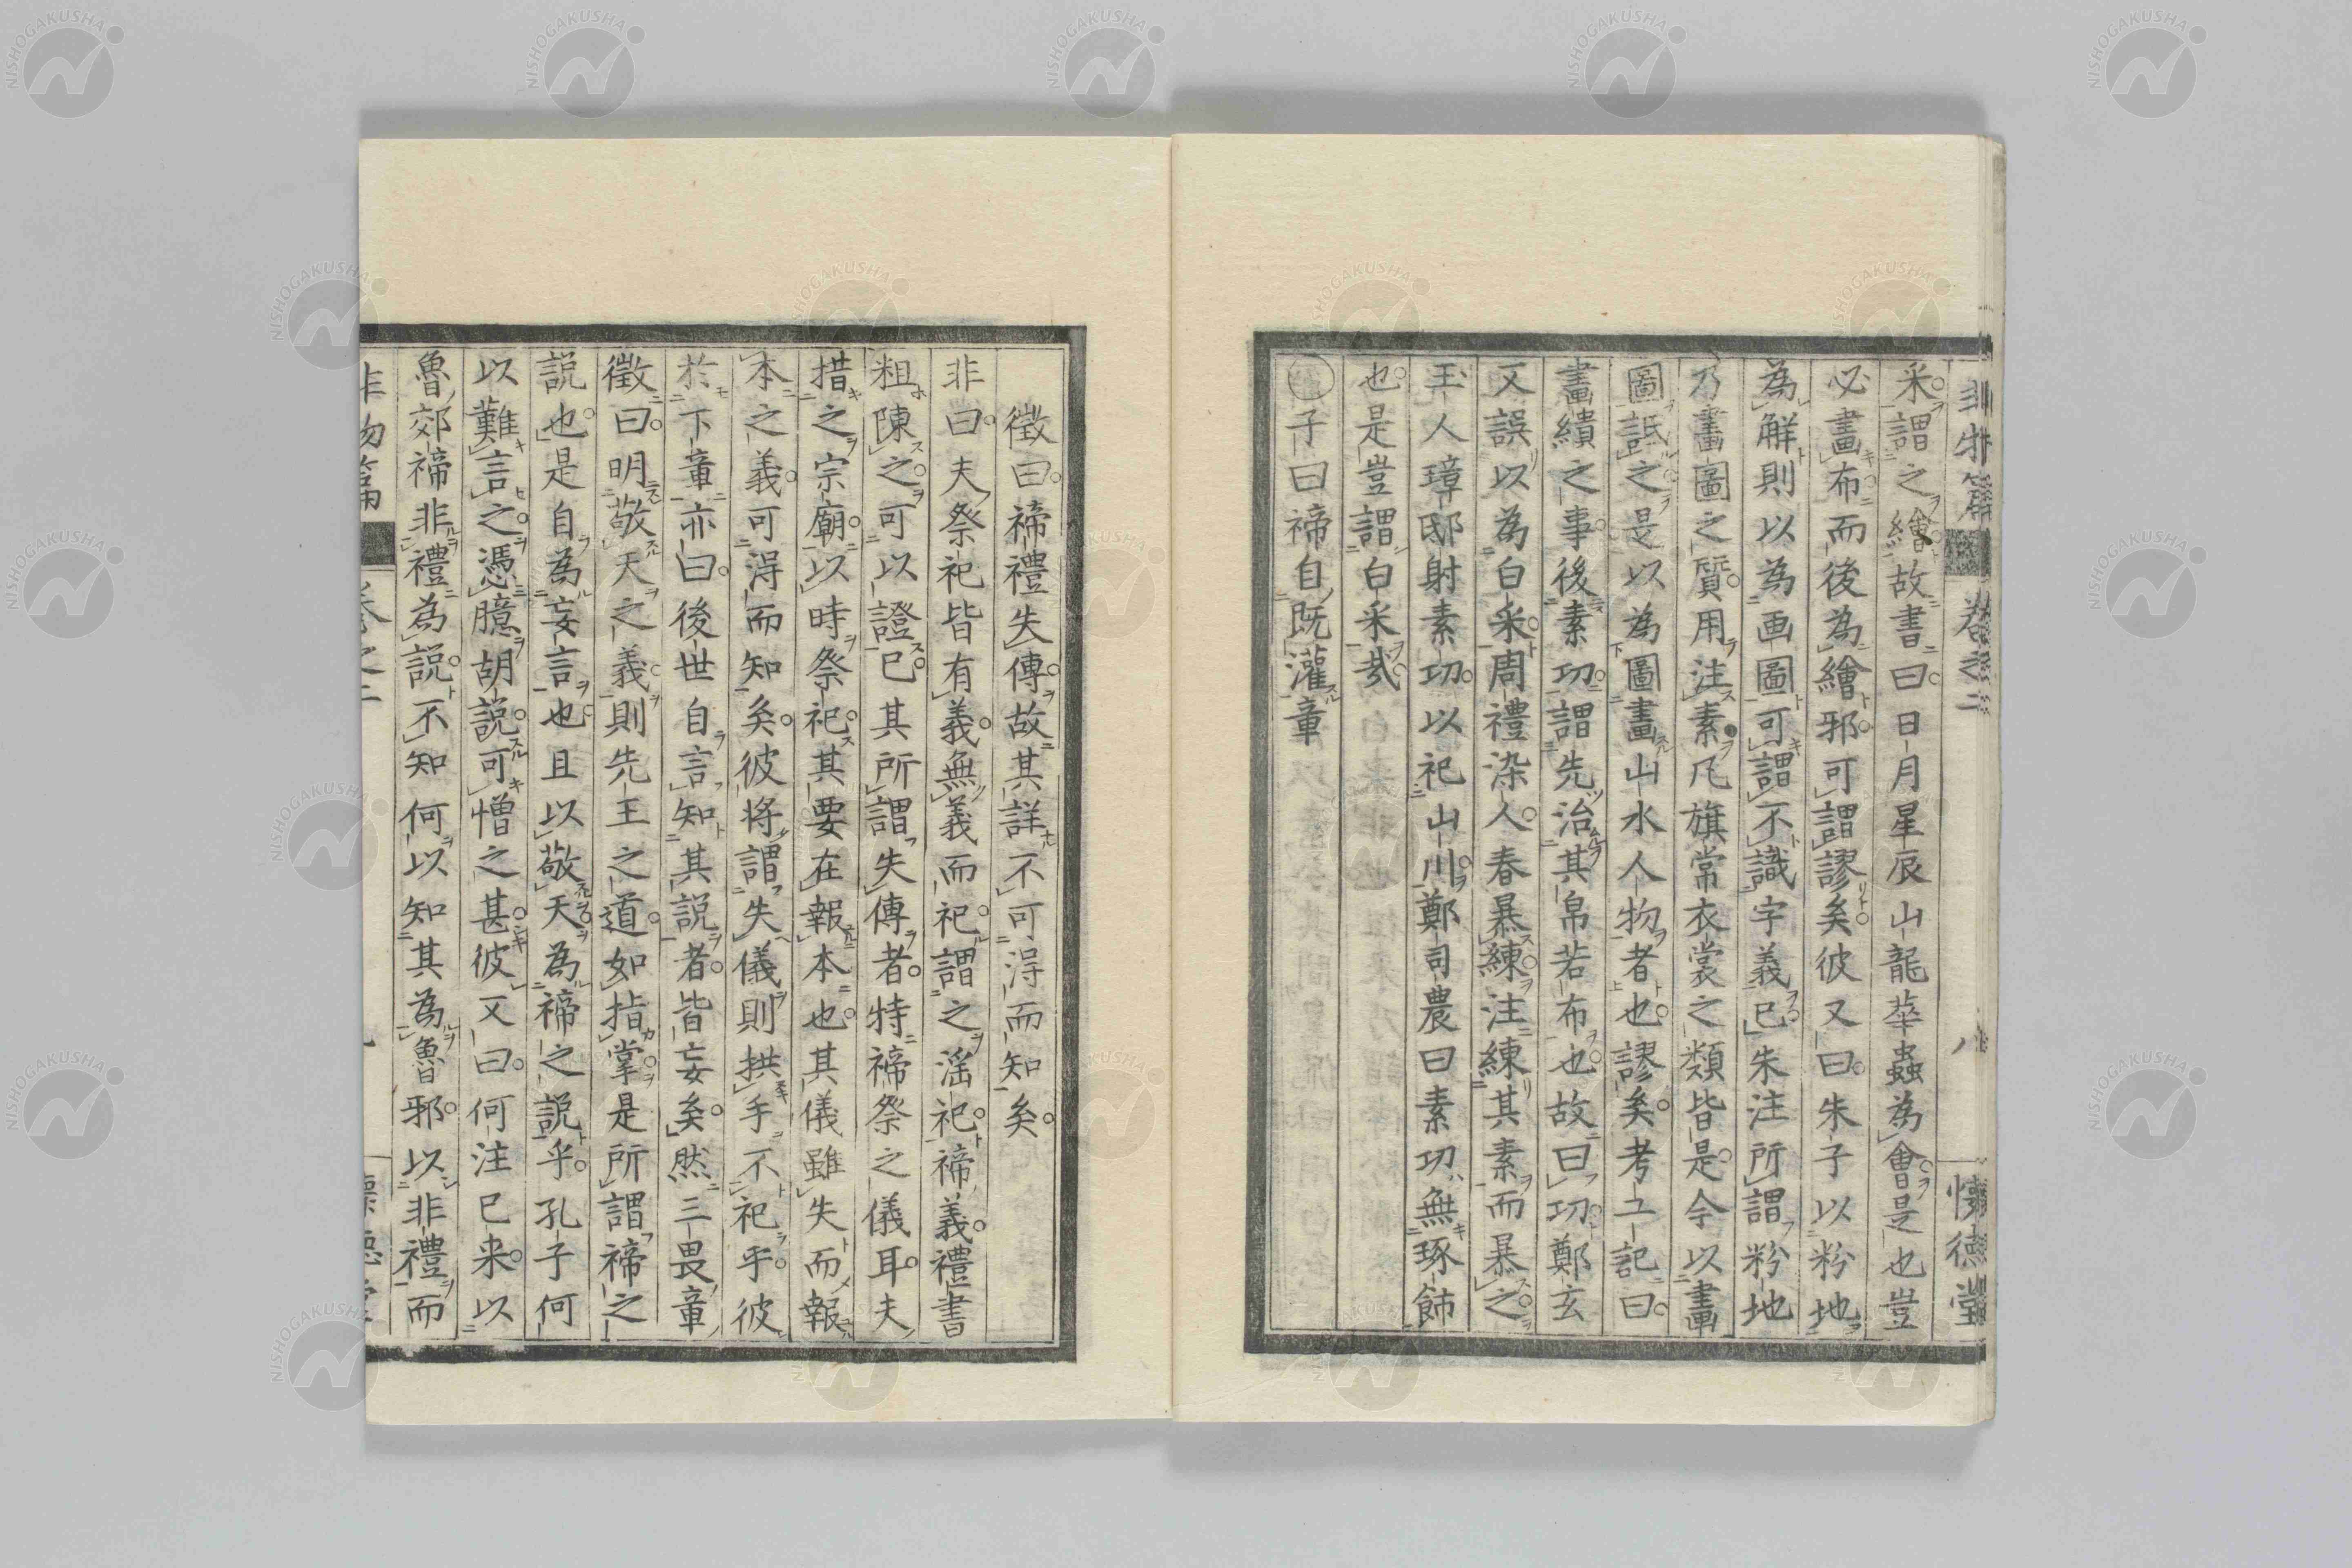 非物篇 卷之二 八 懷德堂
采謂之繪故書曰日月星辰山龍華蟲為會是也豈
必畫布而後為繪邪可謂謬矣彼又曰朱子以粉地
為解則以為画圖可謂不識字義已朱注所謂粉地
乃畫圖之質用注素凡旗常衣裳之類皆是今以畫
圖詆之是以為圖畫山水人物者也謬矣考工記曰
畫繢之事後素功謂先治其帛若布也故曰功鄭玄
又誤以為白采周禮染人春暴練注練其素而暴之
玉人璋邸射素功以祀山川鄭司農曰素功無琢飾
也是豈謂白采哉
子曰禘自既灌章
徵曰禘禮失傳故其詳不可得而知矣
非曰夫祭祀皆有義無義而祀謂之淫祀禘義禮書
粗陳之可以證已其所謂失傳者特禘祭之儀耳夫
措之宗廟以時祭祀其要在報本也其儀雖失而報
本之義可得而知矣彼將謂失儀則拱手不祀乎彼
於下章亦曰後世自言知其說者皆妄矣然三畏章
徵曰明敬天之義則先王之道如指掌是所謂禘之
說也是自為妄言也且以敬天為禘之說乎孔子何
以難言之憑臆胡說可憎之甚彼又曰何注已来以
魯郊禘非禮為說不知何以知其為魯邪以非禮而
非物篇 卷之二 九 懷德堂
NISHOGAKUSHA